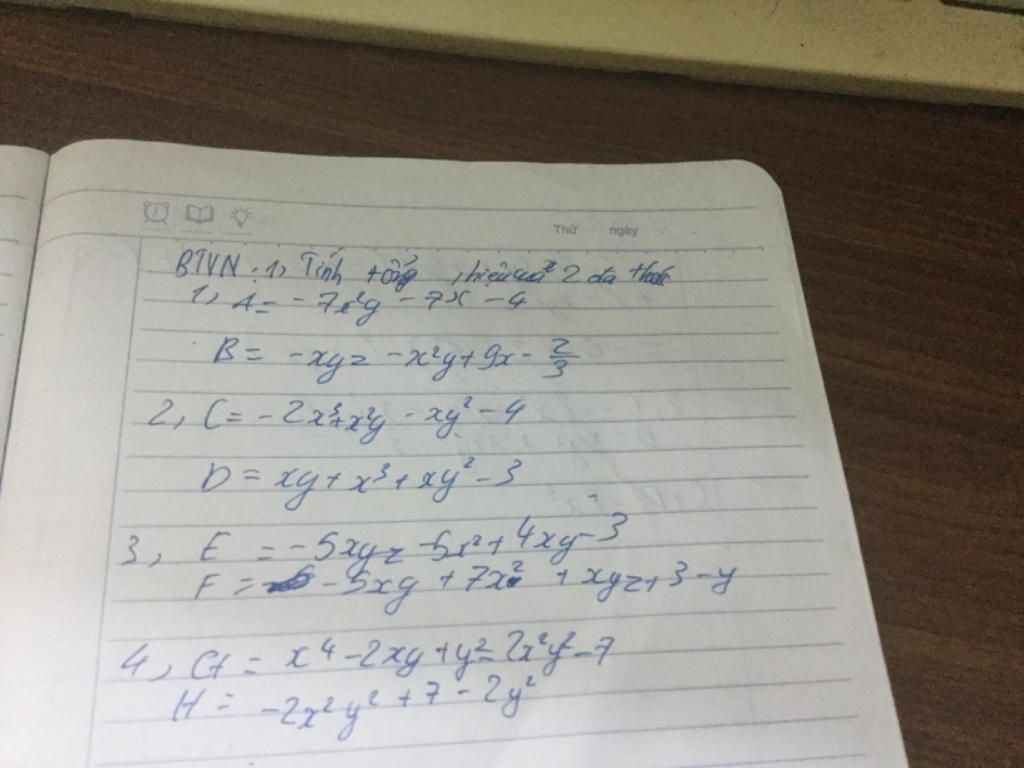 Thứ ngày
BTVN : 1, Tính tổng, hiệu của 2 đa thức
1, A = -7x²y - 7x - 4
B = -xyz - x²y + 9x - 2/3
2, C = -2x³ + x²y - xy² - 4
D = xy + x³ + xy² - 3
3, E = -5xyz - 5x² + 4xy - 3
F = -5xy + 7x² + xyz + 3 - y
4, G = x⁴ - 2xy + y² - 2x²y² - 7
H = -2x²y² + 7 - 2y²